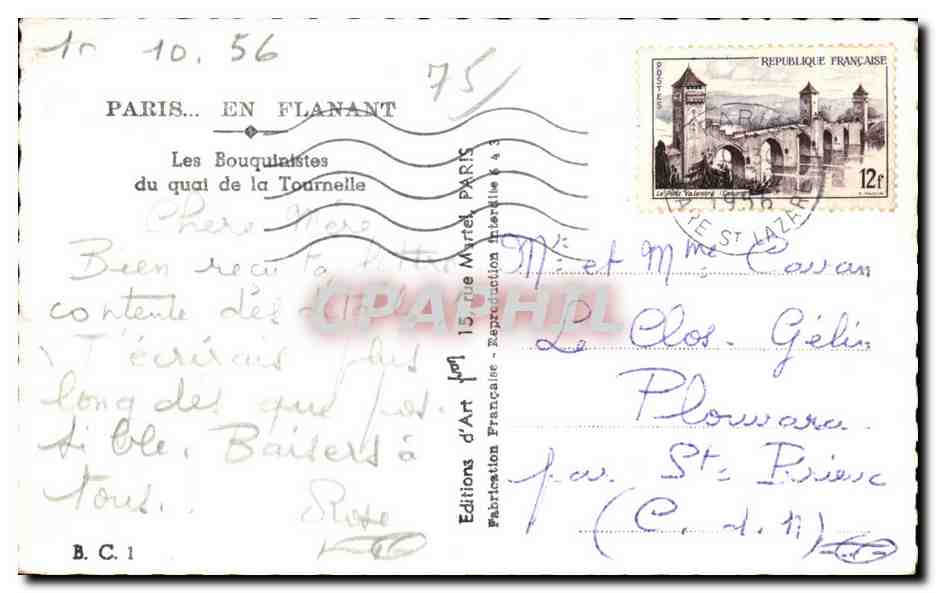 10.56
75/
PARIS... EN FLANANT
Les Bouquinistes
du quai de la Tournelle
Chère Mère
Bien reçu ta lettre
contente des détails
T'écrirais plus
long dès que pos.
sible. Baisers à
tous.
Rose
B. C. 1
Editions d'Art 15, rue Martel, PARIS
Fabrication Française - Reproduction interdite 643
REPUBLIQUE FRANÇAISE
POSTES
Le Pont Valentré (Cahors)
12f
1956
GARE ST LAZARE
Mr et Mme
Le Clos. Gélin
Plouvara
par St. Brieuc
(C. d. N)
CPAPHIL